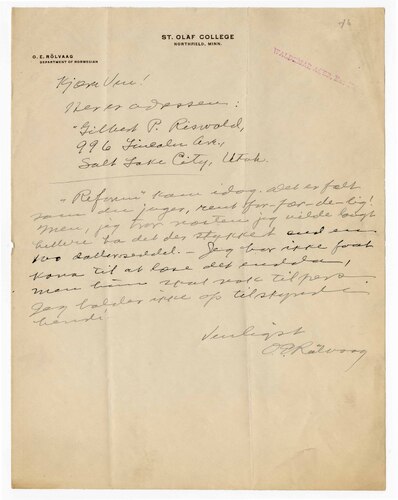 ST. OLAF COLLEGE
NORTHFIELD, MINN.
O. E. RÖLVAAG
DEPARTMENT OF NORWEGIAN
Kjære Ven!
Her er adressen:
"Gilbert P. Riswold,
996 Lincoln Ave.,
Salt Lake City, Utah.
"Reform" kom idag. Det er fælt
som du jager, rent for-fær-de-lig!
Men, jeg tror næsten jeg vilde langt
hellere ha det der stykket end en
100 dollarseddel. — Jeg har ikke faat
Kona til at læse det endda,
men hun skal nok til pers.
Jeg holder ikke op
Venligst
O E Rölvaag